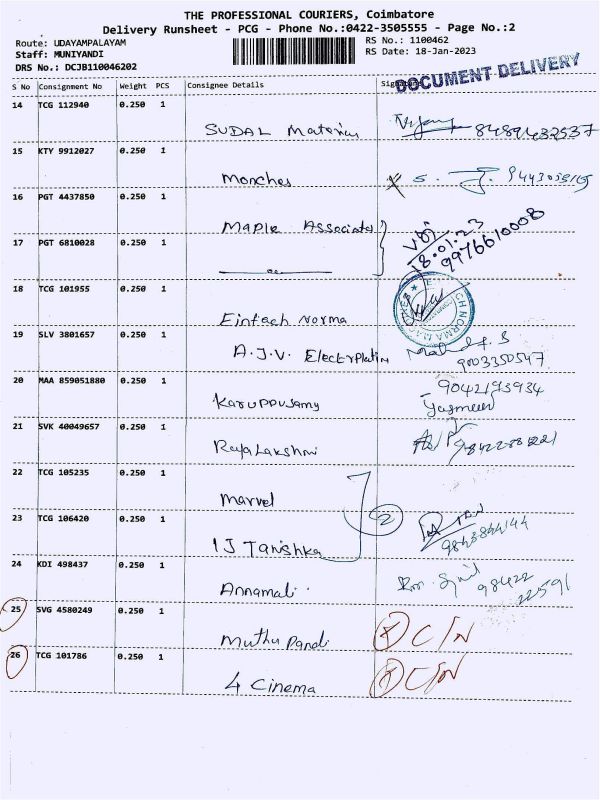 THE PROFESSIONAL COURIERS, Coimbatore
Delivery Runsheet - PCG - Phone No.:0422-3505555 - Page No.:2
Route: UDAYAMPALAYAM
Staff: MUNIYANDI
DRS No.: DCJB110046202
RS No.: 1100462
RS Date: 18-Jan-2023
DOCUMENT DELIVERY
S No Consignment No Weight PCS Consignee Details
14 TCG 112940 0.250 1
SUDAL Materias 8489432537
15 KTY 9912027 0.250 1
Monches S.
16 PGT 4437850 0.250 1
Maple Associates 18.01.23 9976610008
17 PGT 6810028 0.250 1
18 TCG 101955 0.250 1
Eintech Norma
19 SLV 3801657 0.250 1
A.J.V. Electrplatin 9003350547
20 MAA 859051880 0.250 1
Karuppusamy 9042193934
21 SVK 40049657 0.250 1
RajaLakshmi
22 TCG 105235 0.250 1
Marvel
23 TCG 106420 0.250 1
IJ Tanishka 2 9843844144
24 KDI 498437 0.250 1
Annamali 98422 22591
25 SVG 4580249 0.250 1
Muthu Pandi C/N
26 TCG 101786 0.250 1
4 Cinema C/N